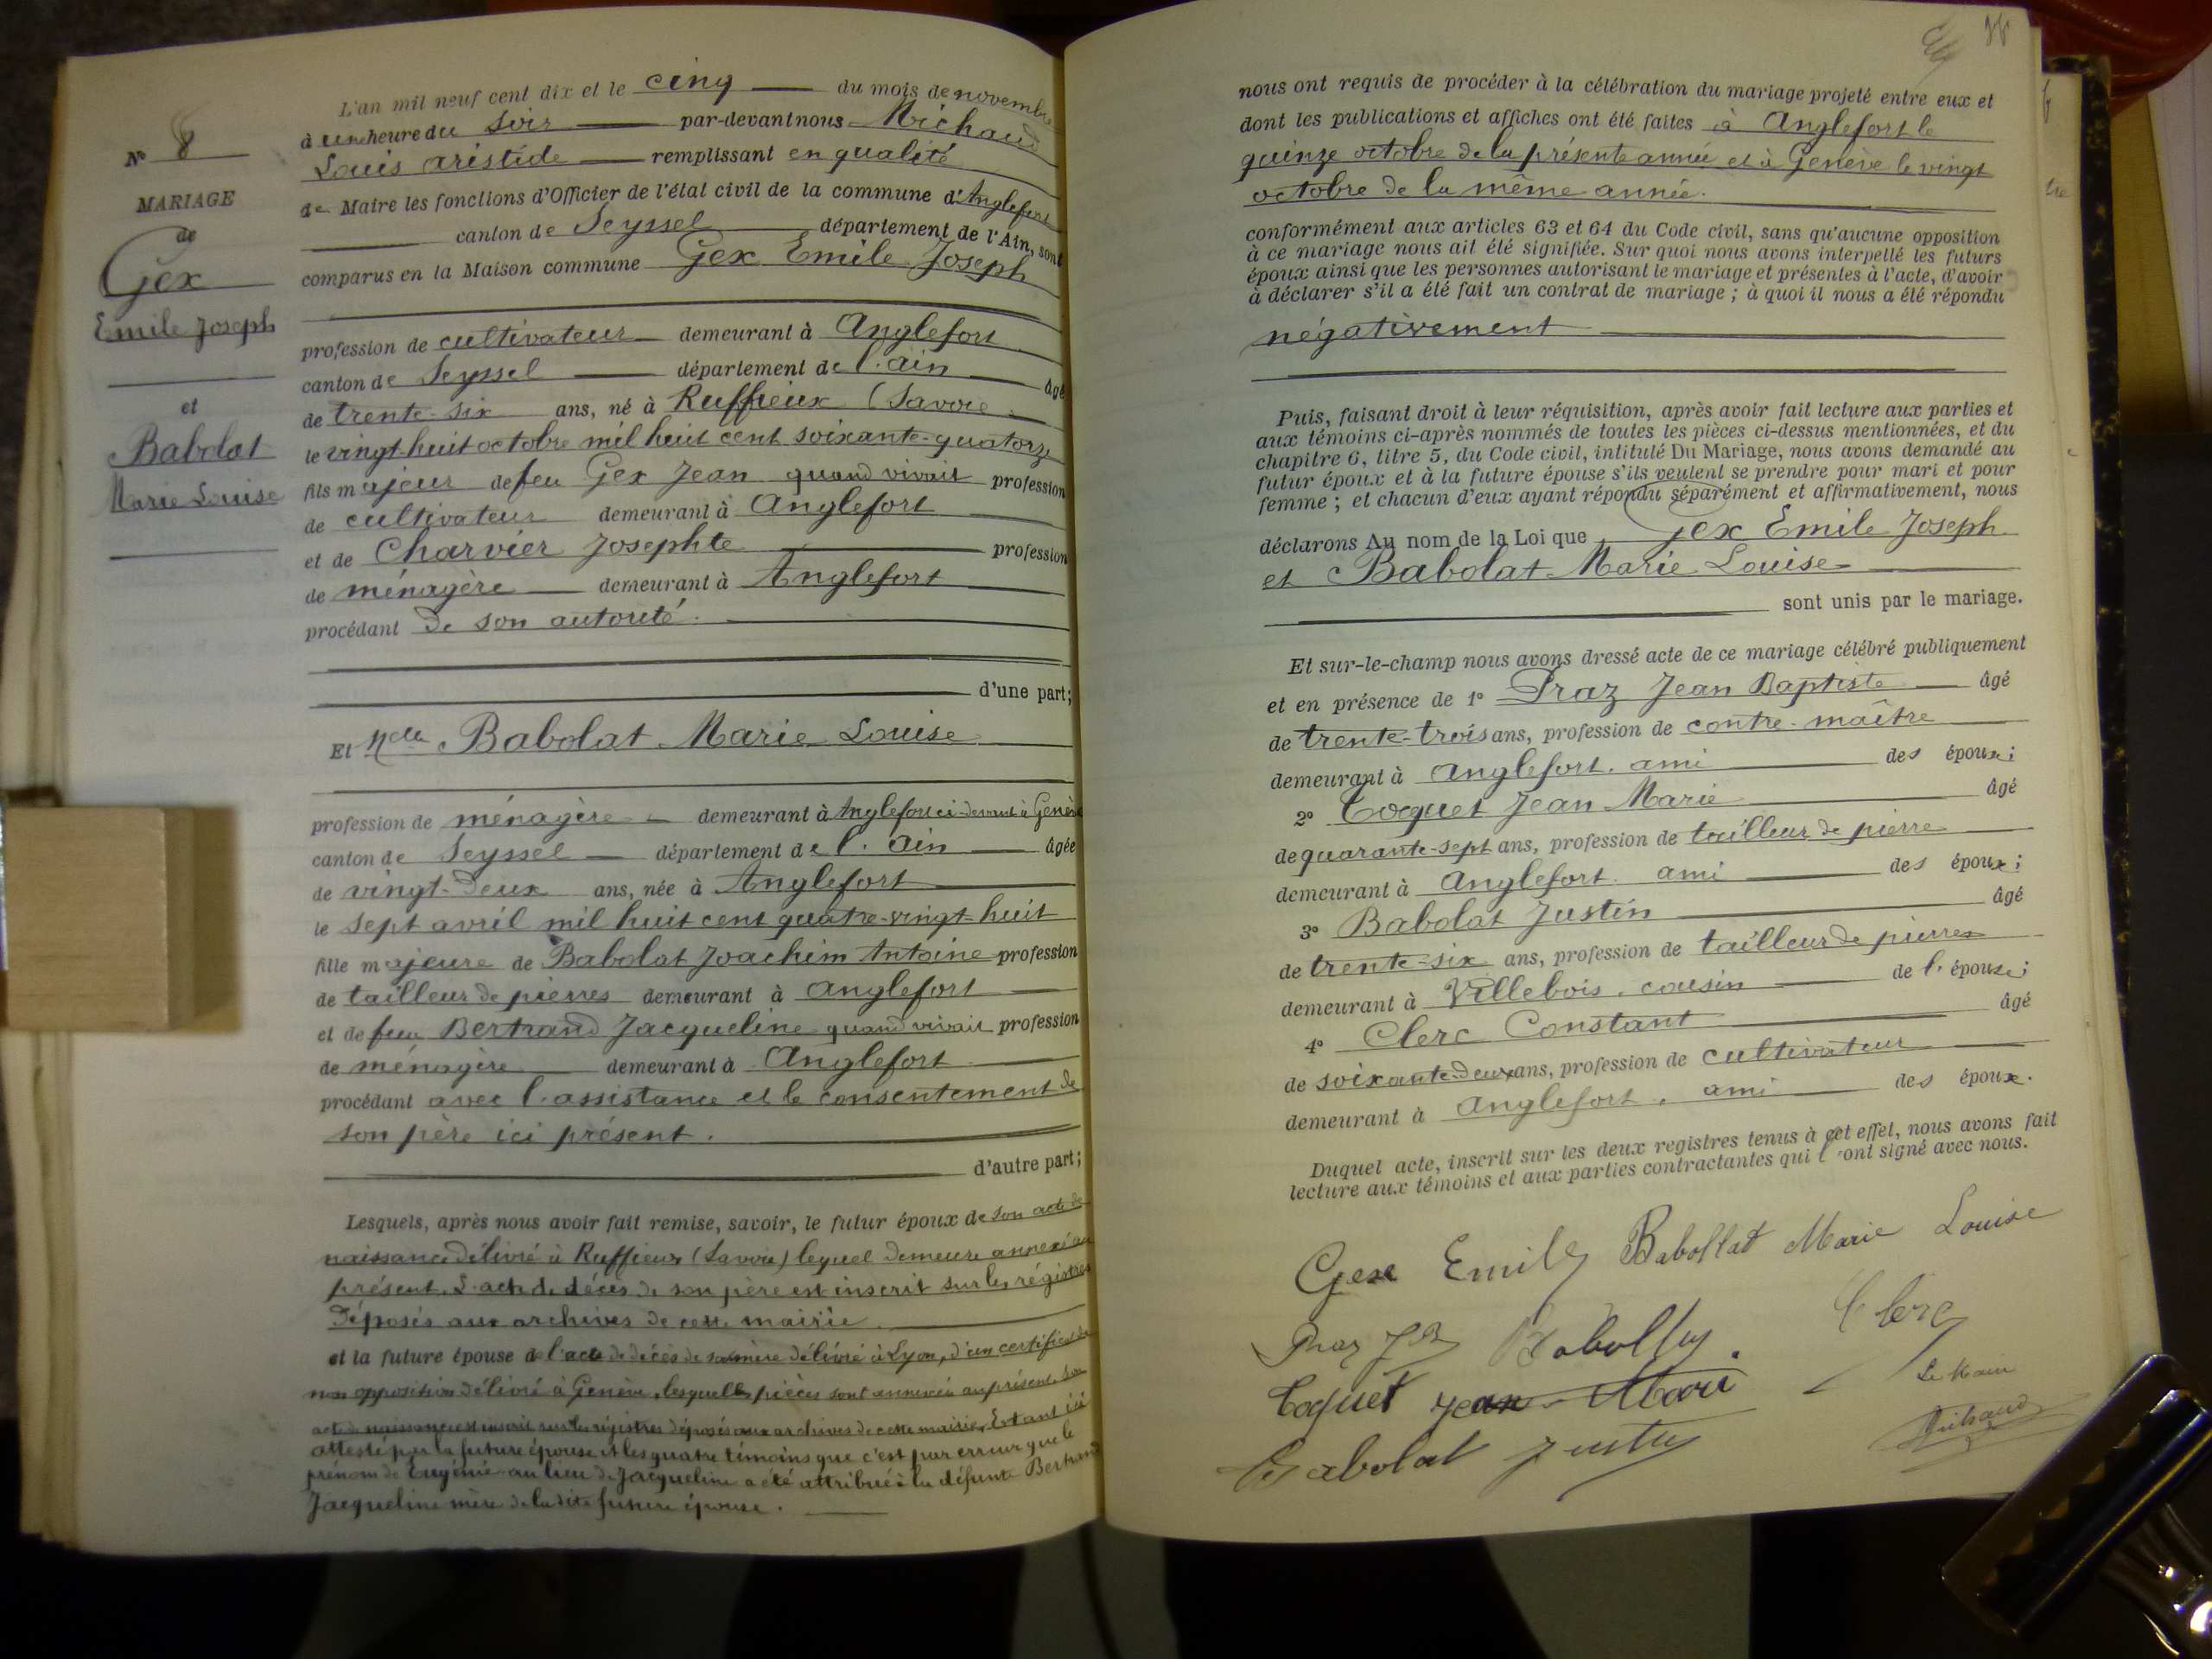 N° 8
MARIAGE
de
Gex
Emile Joseph
et
Babolat
Marie Louise
L'an mil neuf cent dix et le cinq du mois de novembre
à une heure du soir par-devant nous Michaud
Louis aristide remplissant en qualité
de Maire les fonctions d'Officier de l'état civil de la commune d'Anglefort
canton de Seyssel département de l'Ain, sont
comparus en la Maison commune Gex Emile Joseph
profession de cultivateur demeurant à Anglefort
canton de Seyssel département de l'ain âgé
de trente-six ans, né à Ruffieux (Savoie
le vingt-huit octobre mil huit cent soixante-quatorze
fils majeur de feu Gex Jean quand vivait profession
de cultivateur demeurant à Anglefort
et de Charvier Josephte profession
de ménagère demeurant à Anglefort
procédant de son autorité.
d'une part;
Et Melle Babolat Marie Louise
profession de ménagère demeurant à Anglefort ci-devant à Genève
canton de Seyssel département de l'Ain âgée
de vingt-deux ans, née à Anglefort
le sept avril mil huit cent quatre-vingt-huit
fille majeure de Babolat Joachim Antoine profession
de tailleur de pierres demeurant à Anglefort
et de feue Bertrand Jacqueline quand vivait profession
de ménagère demeurant à Anglefort
procédant avec l'assistance et le consentement de
son père ici présent.
d'autre part;
Lesquels, après nous avoir fait remise, savoir, le futur époux de son acte de
naissance délivré à Ruffieux (Savoie) lequel demeure annexé au
présent. L'acte de décès de son père est inscrit sur les régistres
déposés aux archives de cette mairie.
et la future épouse de l'acte de décès de sa mère délivré à Lyon, d'un certificat de
non opposition délivré à Genève, lesquelles pièces sont annexées au présent, son
acte de naissance est inscrit sur les régistres déposés aux archives de cette mairie. Étant ici
attesté par la future épouse et les quatre témoins que c'est par erreur que le
prénom de Eugénie au lieu de Jacqueline a été attribué à la défunte Bertrand
Jacqueline mère de la dite future épouse.
nous ont requis de procéder à la célébration du mariage projeté entre eux et
dont les publications et affiches ont été faites à Anglefort le
quinze octobre de la présente année et à Genève le vingt
octobre de la même année.
conformément aux articles 63 et 64 du Code civil, sans qu'aucune opposition
à ce mariage nous ait été signifiée. Sur quoi nous avons interpellé les futurs
époux ainsi que les personnes autorisant le mariage et présentes à l'acte, d'avoir
à déclarer s'il a été fait un contrat de mariage ; à quoi il nous a été répondu
négativement
Puis, faisant droit à leur réquisition, après avoir fait lecture aux parties et
aux témoins ci-après nommés de toutes les pièces ci-dessus mentionnées, et du
chapitre 6, titre 5, du Code civil, intitulé Du Mariage, nous avons demandé au
futur époux et à la future épouse s'ils veulent se prendre pour mari et pour
femme ; et chacun d'eux ayant répondu séparément et affirmativement, nous
déclarons Au nom de la Loi que Gex Emile Joseph
et Babolat Marie Louise
sont unis par le mariage.
Et sur-le-champ nous avons dressé acte de ce mariage célébré publiquement
et en présence de 1° Praz Jean Baptiste âgé
de trente-trois ans, profession de contre-maître
demeurant à Anglefort, ami des époux;
2° Coquet Jean Marie âgé
de quarante-sept ans, profession de tailleur de pierre
demeurant à Anglefort ami des époux;
3° Babolat Justin âgé
de trente-six ans, profession de tailleur de pierres
demeurant à Villebois, cousin de l'épouse;
4° Clerc Constant âgé
de soixante-deux ans, profession de cultivateur
demeurant à Anglefort, ami des époux.
Duquel acte, inscrit sur les deux registres tenus à cet effet, nous avons fait
lecture aux témoins et aux parties contractantes qui ont signé avec nous.
Gex Emile Babollat Marie Louise
Praz JB Babollat Clerc
Coquet Jean Marie Le Maire
Babolat Justin Michaud